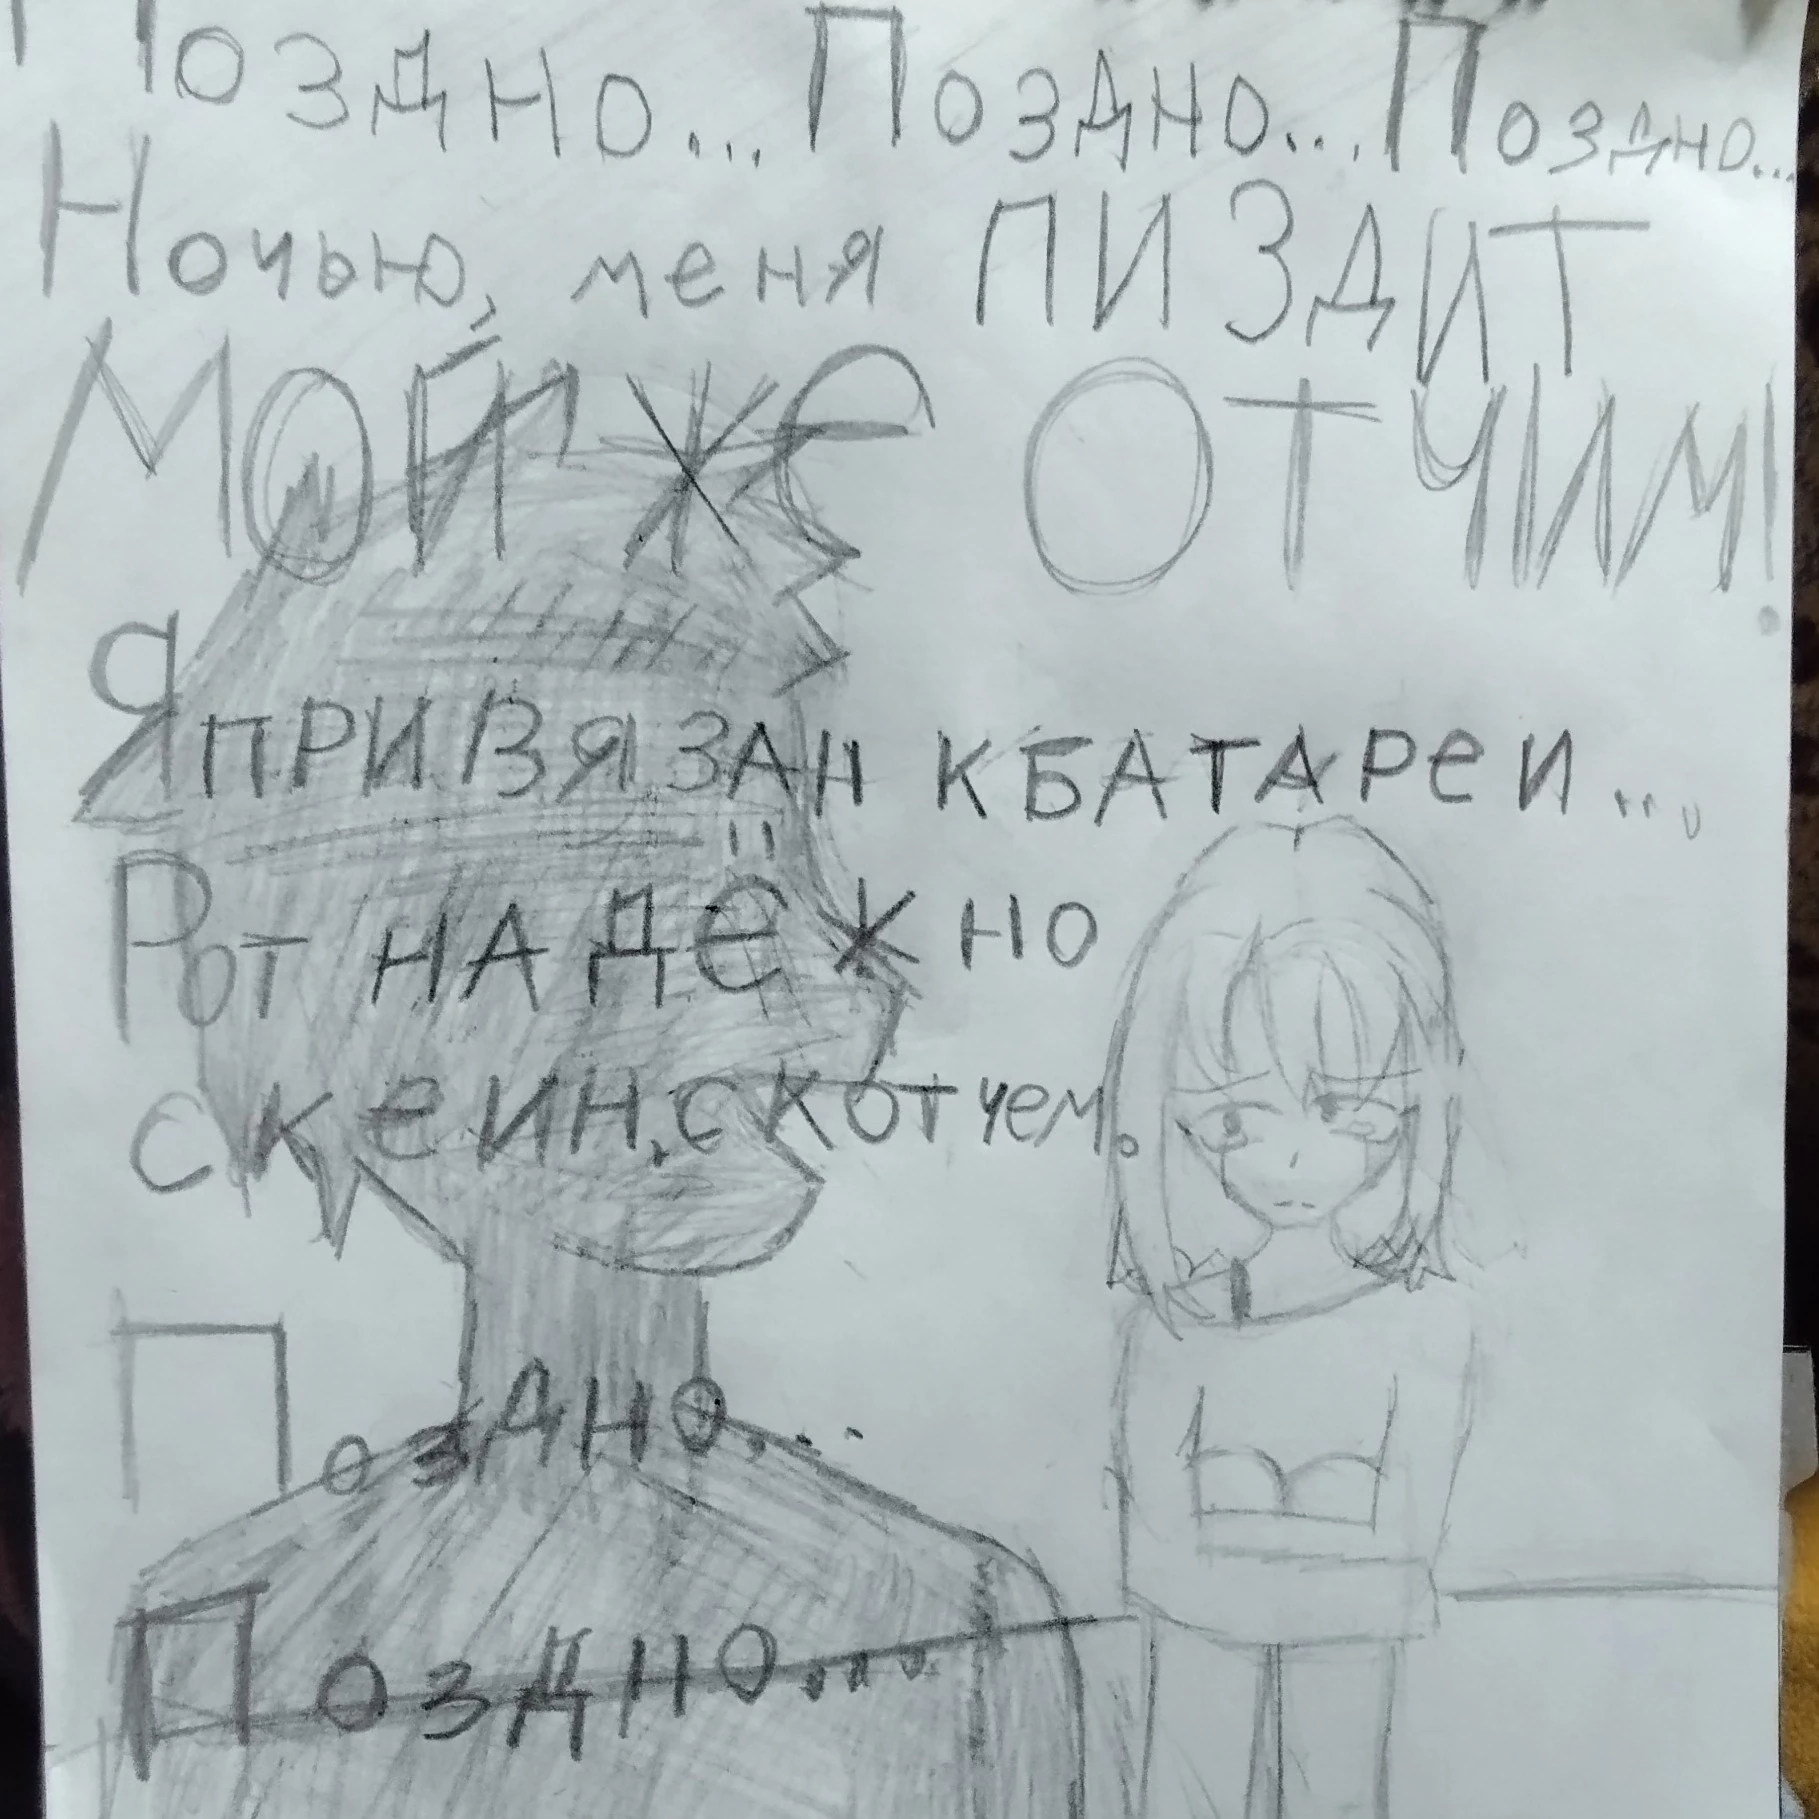 Поздно... Поздно... Поздно...
Ночью, меня ПИЗДИТ
МОЙ ЖЕ ОТЧИМ!
Я ПРИВЯЗАН К БАТАРЕИ...
Рот НАДЁЖНО
скеин, скотчем.
Поздно...
Поздно....